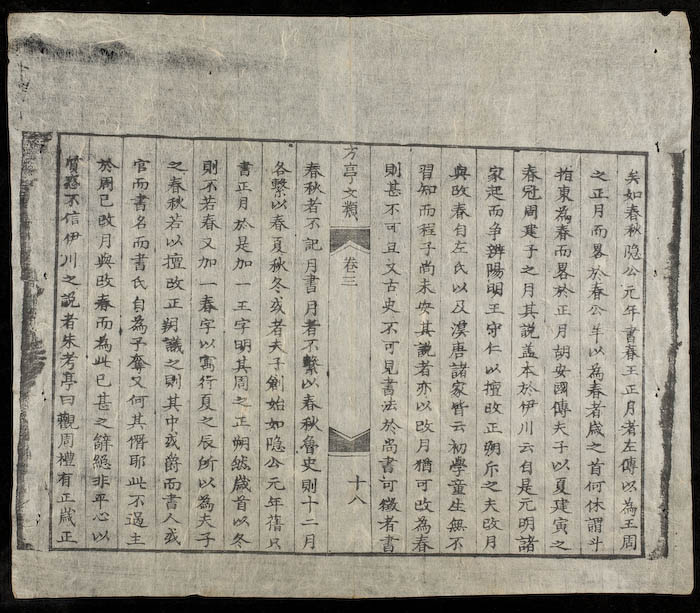 矣如春秋隐公元年書春王正月者左傳以為王周
之正月而畧於春公羊以為春者歲之首何休謂斗
指東為春而畧於正月胡安國傳夫子以夏建寅之
春冠周建子之月其說盖本於伊川云自是元明諸
家起而爭辨陽明王守仁以擅改正朔斥之夫改月
與改春自左氏以及漢唐諸家皆云初學童生無不
習知而程子尚未安其說者亦以改月猶可改為春
則甚不可且文古史不可見書法於尚書可徵者書
方亭文類
卷三
十八
春秋者不記月書月者不繫以春秋魯史則十二月
各繫以春夏秋冬或者夫子創始如隐公元年舊只
書正月於是加一王字明其周之正朔然歲首以冬
則不若春又加一春字以寓行夏之辰所以為夫子
之春秋若以擅改正朔議之則其中或爵而書人或
官而書名而書氏自為予奪又何其僭耶此不過主
於周已改月與改春而為此已甚之辭絕非平心以
不信伊川之說者朱考亭曰觀周禮有正歲正